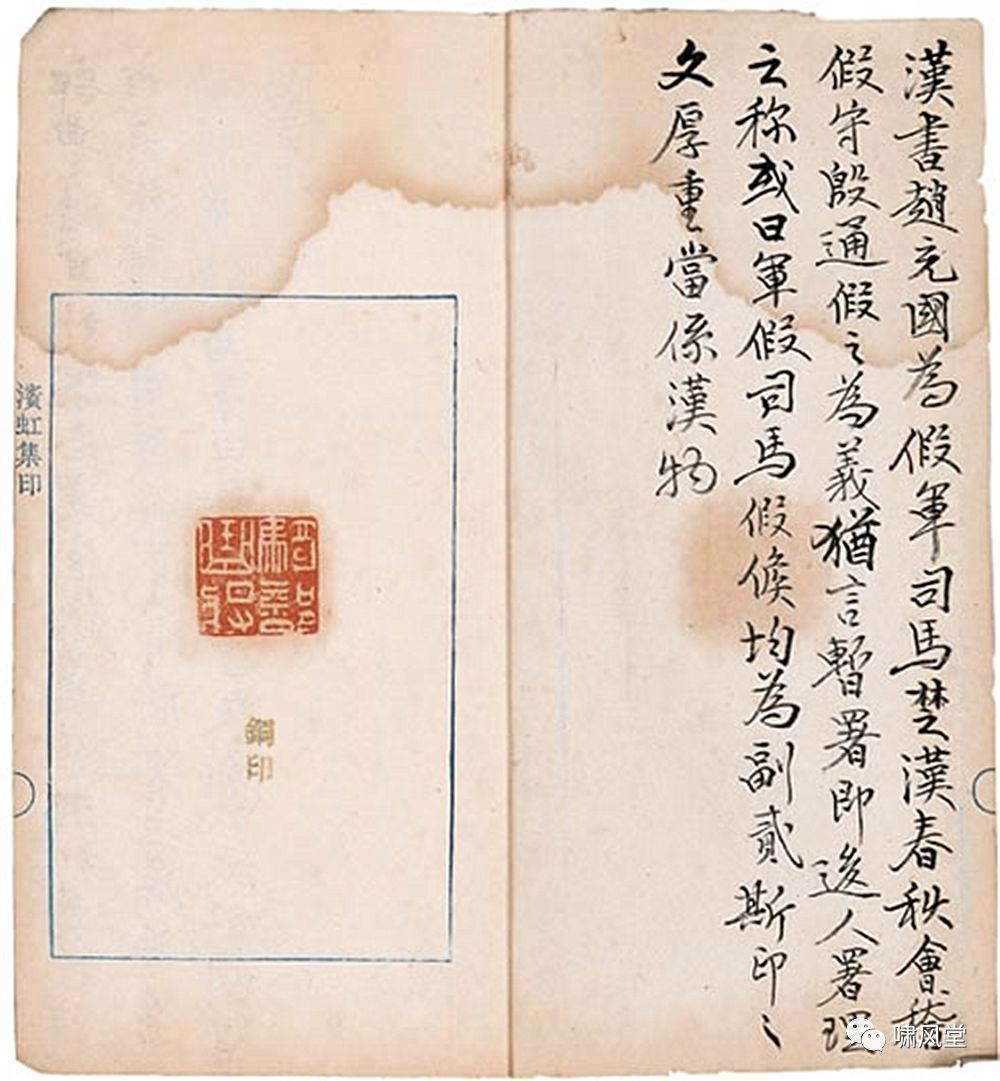 漢書趙充國為假軍司馬楚漢春秋會稽
假守殷通假之為義猶言暫署即後人署理
之称或曰軍假司馬假候均為副貳斯印之
文厚重當係漢物
銅印
濱虹集印
啸风堂